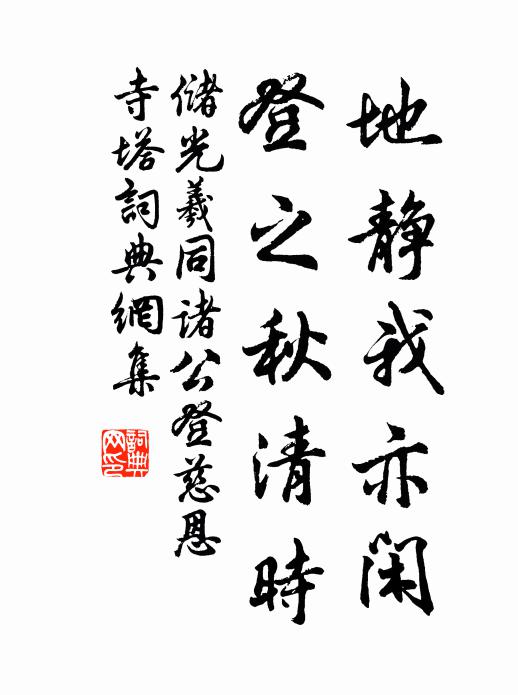 地靜我亦閑
登之秋清時
儲光羲同諸公登慈恩
寺塔詞典網集
詞典網印